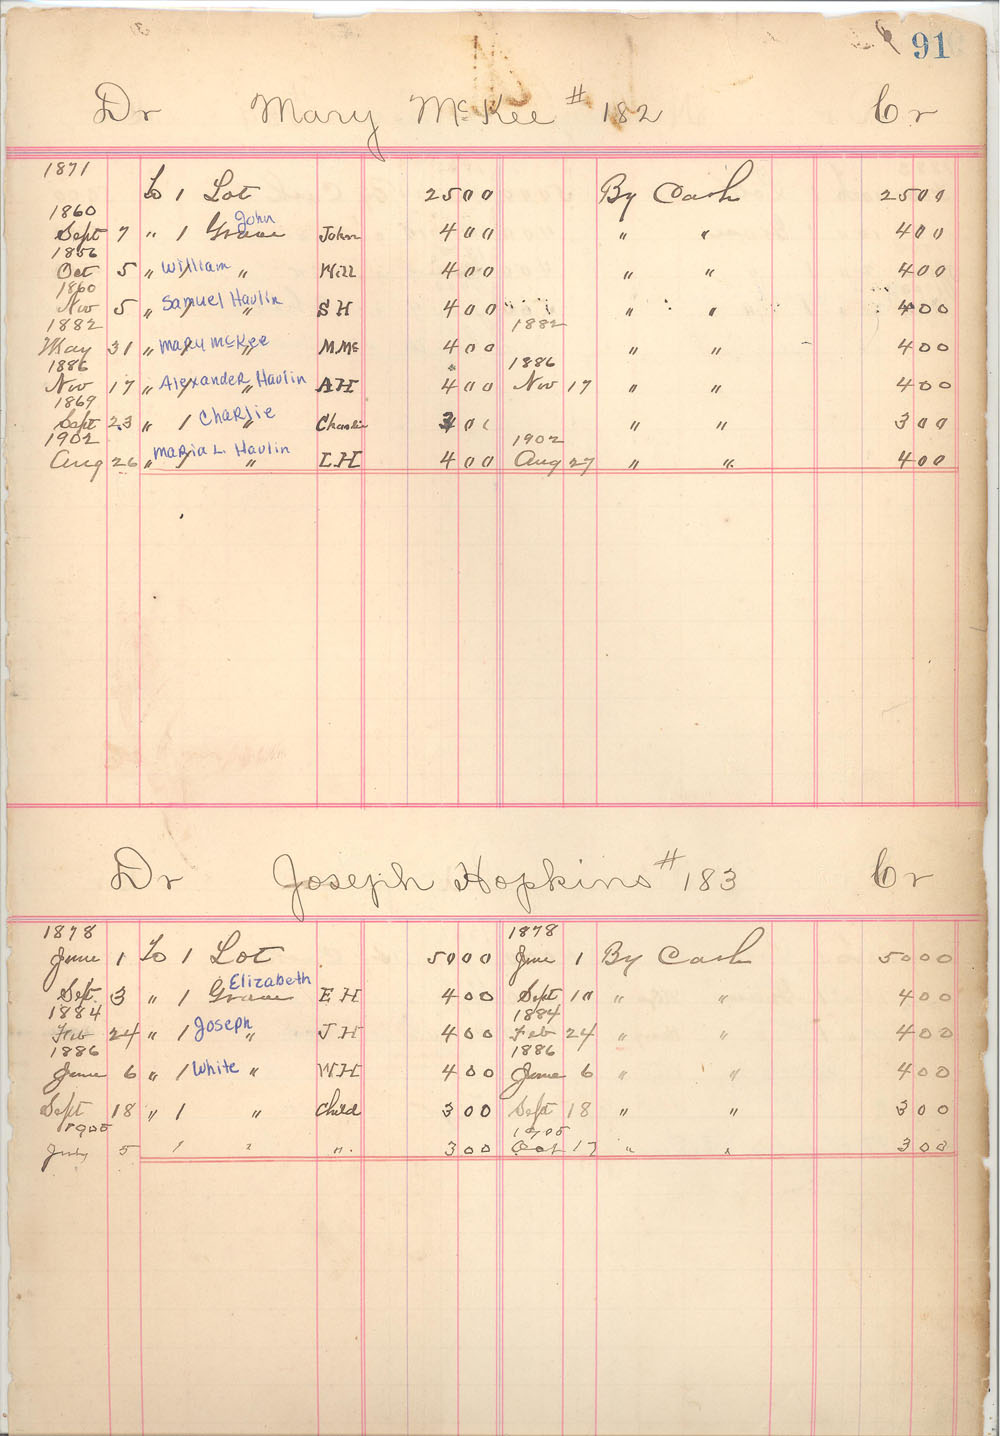 91
Dr Mary McKee # 182 Cr
1871
To 1 Lot 25 00 By Cash 25 00
1860
Sept 7 " 1 Grave John John 4 00 " " 4 00
1856
Oct 5 " William " Will 4 00 " " 4 00
1860
Nov 5 " Samuel Havlin " S H 4 00 " " 4 00
1882 1882
May 31 " Mary McKee " M Mc 4 00 " " 4 00
1886 1886
Nov 17 " Alexander Havlin " A H 4 00 Nov 17 " " 4 00
1869
Sept 23 " 1 Charlie " Charlie 3 00 " " 3 00
1902 1902
Aug 26 " Maria L. Havlin " L.H 4 00 Aug 27 " " 4 00
Dr Joseph Hopkins # 183 Cr
1878 1878
June 1 To 1 Lot 50 00 June 1 By Cash 50 00
Sept. 3 " 1 Grave Elizabeth E H 4 00 Sept 10 " " 4 00
1884 1884
Feb 24 " 1 Joseph " J H 4 00 Feb 24 " " 4 00
1886 1886
June 6 " 1 White " W H 4 00 June 6 " " 4 00
Sept 18 " 1 " Child 3 00 Sept 18 " " 3 00
1905 1905
July 5 1 " " 3 00 Oct 17 " " 3 00